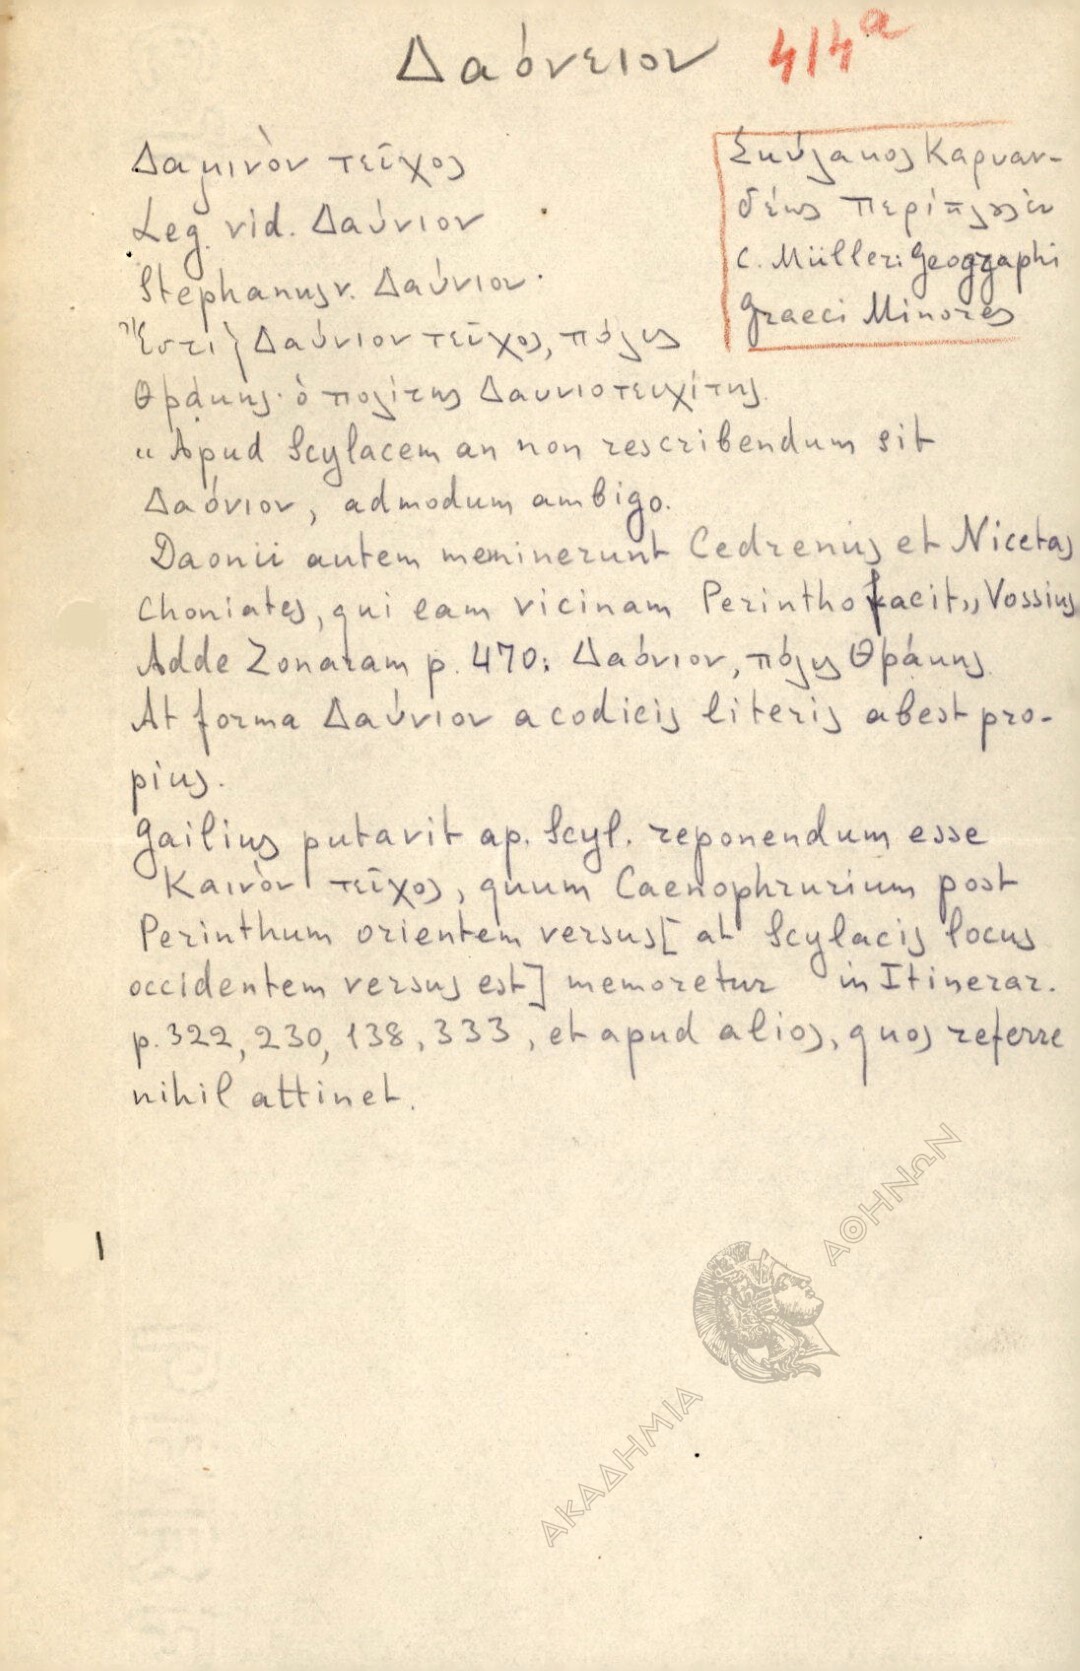 Δαόνειον 414α
Δαμινὸν τεῖχος
Leg. vid. Δαύνιον
Stephanus v. Δαύνιον.
Ἔστι Δαύνιον τεῖχος, πόλις
Θρᾴκης· ὁ πολίτης Δαυνιοτειχίτης.
Σκύλακος Καρυαν-
δέως Περίπλους
C. Müller: Geographi
Graeci Minores
"Apud Scylacem an non rescribendum sit
Δαόνιον, admodum ambigo.
Daonii autem meminerunt Cedrenius et Nicetas
Choniates, qui eam vicinam Perintho facit" Vossius
Adde Zonaram p. 470: Δαόνιον, πόλις Θρᾴκης.
At forma Δαύνιον a codicis literis abest pro-
pius.
Gailius putavit ap. Scyl. reponendum esse
Καινὸν τεῖχος, quum Caenophrurium post
Perinthum orientem versus [at Scylacis locus
occidentem versus est] memoretur in Itinerar.
p. 322, 230, 138, 333, et apud alios, quos referre
nihil attinet.
ΑΚΑΔΗΜΙΑ ΑΘΗΝΩΝ